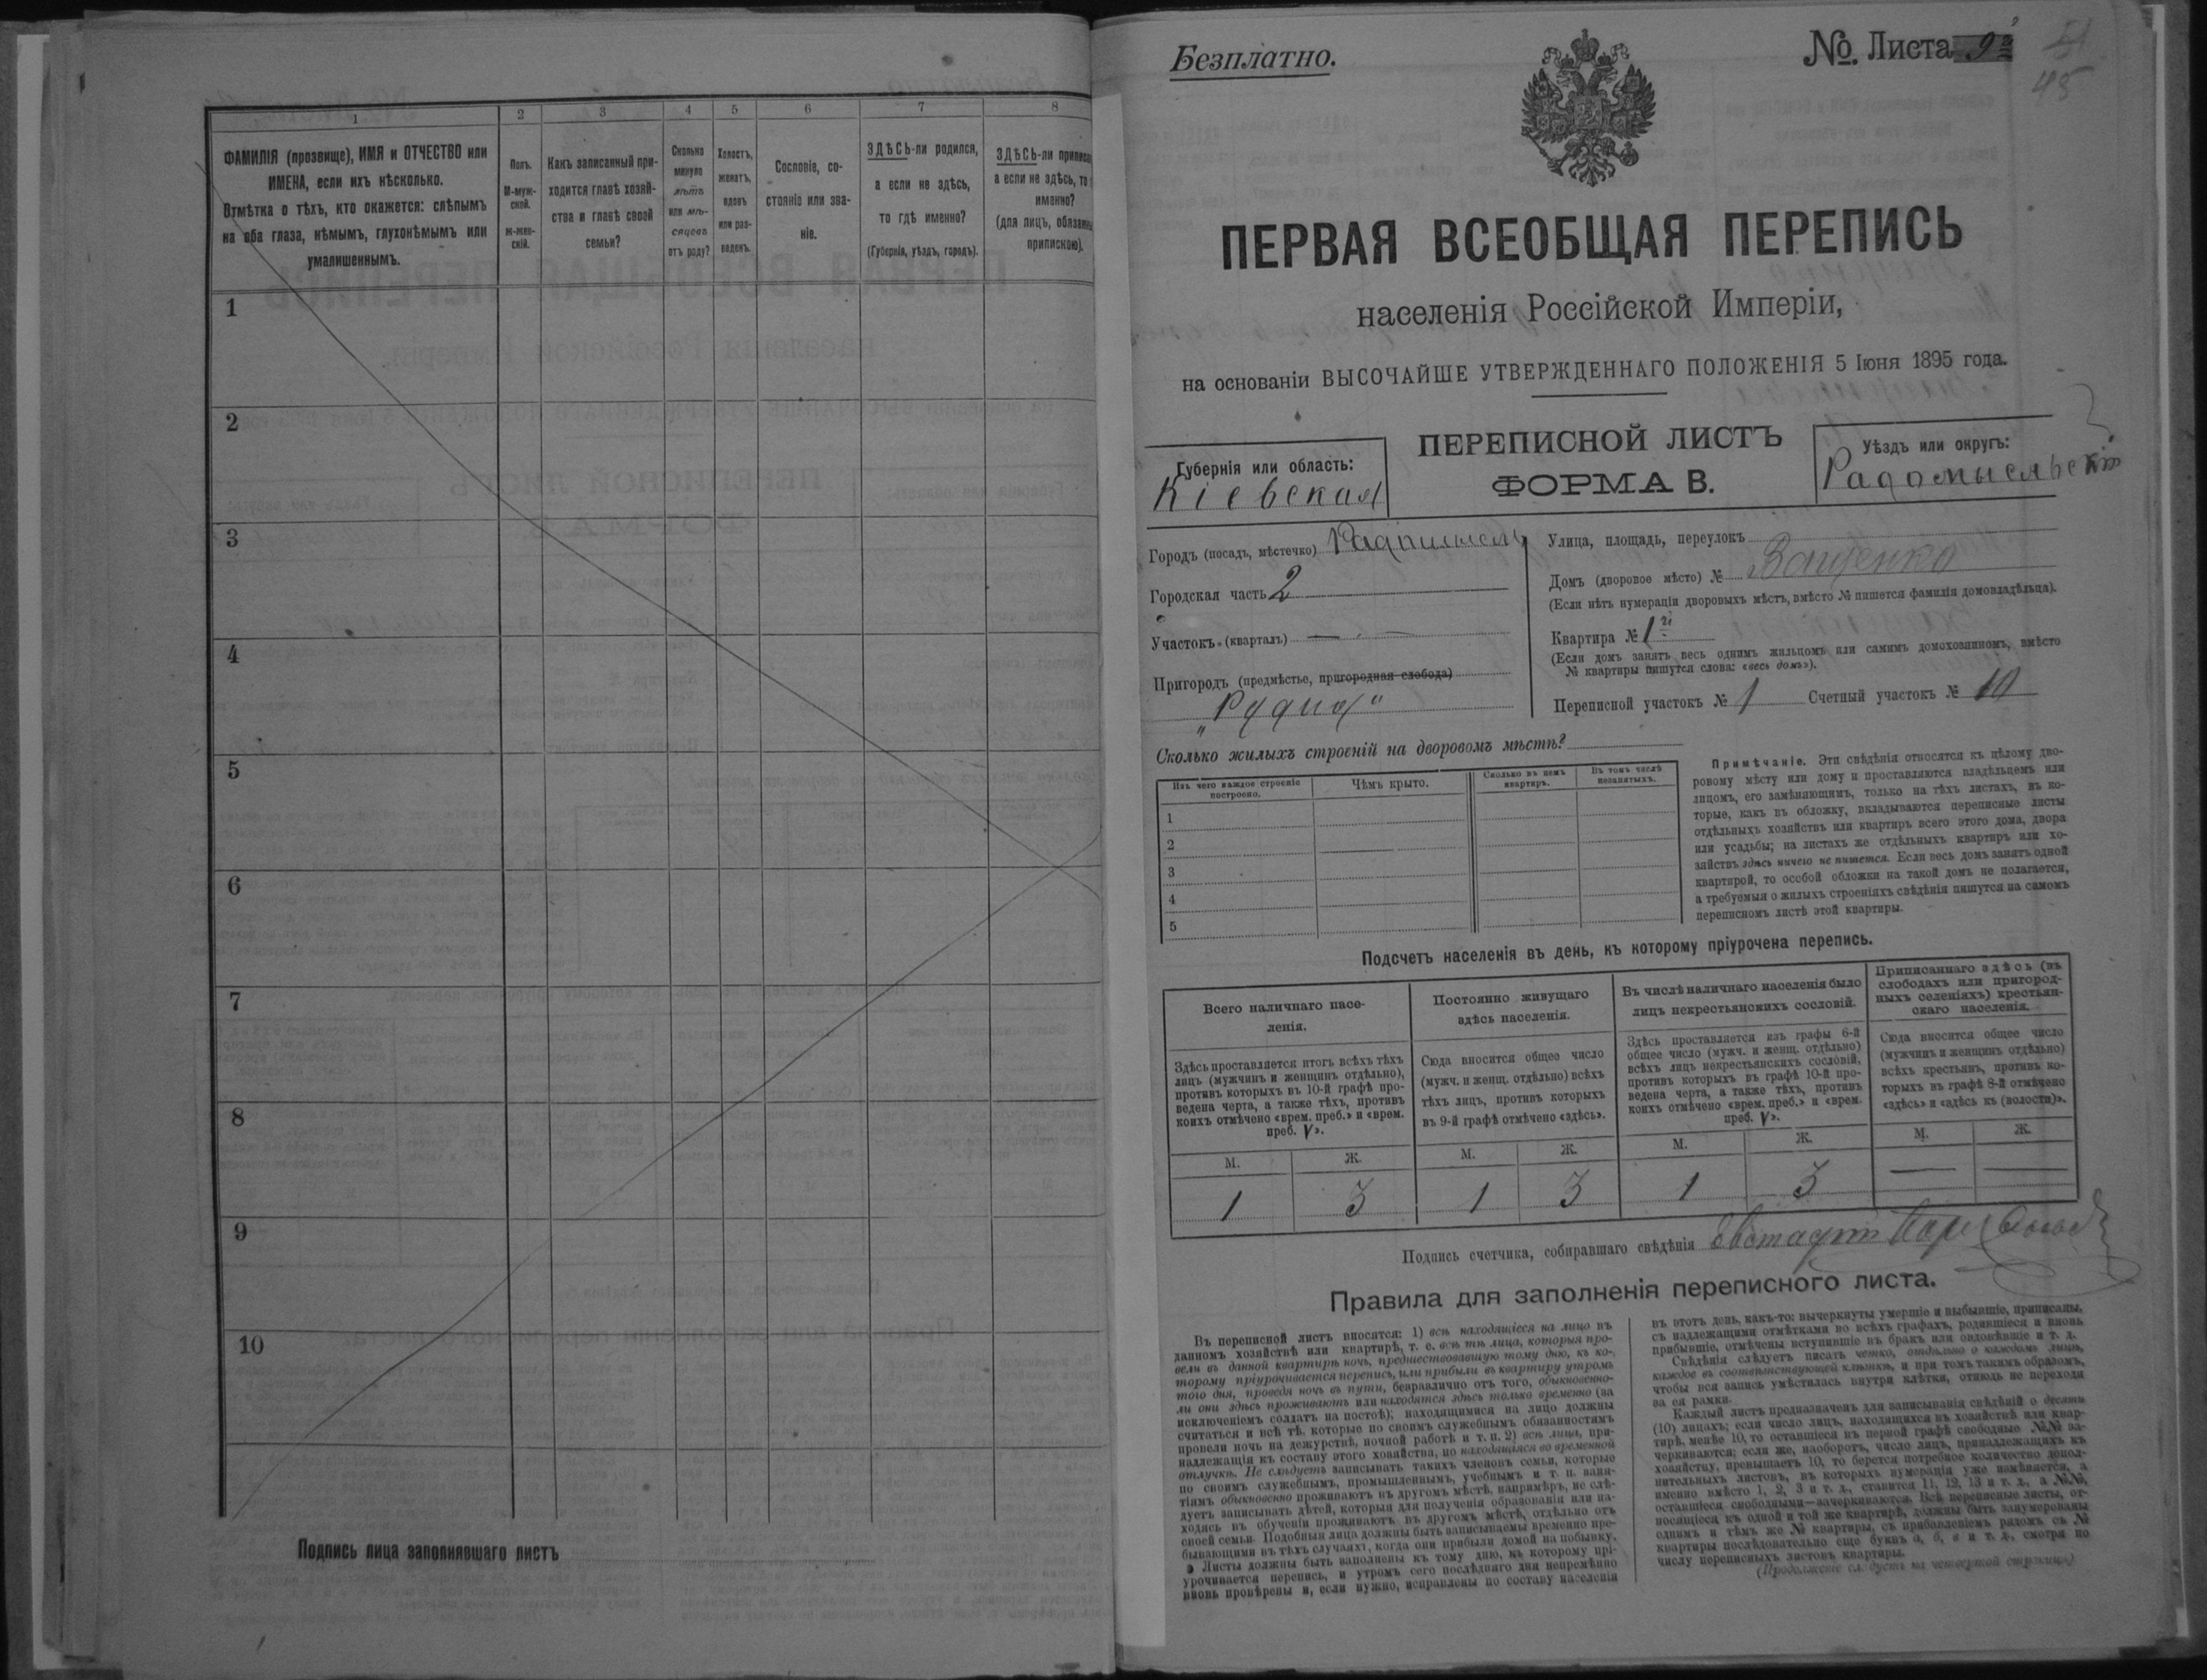 1 2 3 4 5 6 7 8
ФАМИЛІЯ (прозвище), ИМЯ и ОТЧЕСТВО или
ИМЕНА, если ихъ нѣсколько.
Отмѣтка о тѣхъ, кто окажется: слѣпымъ
на оба глаза, нѣмымъ, глухонѣмымъ или
умалишеннымъ.
Полъ.
М-муж-
ской.
ж-жен-
скій.
Какъ записанный при-
ходится главѣ хозяй-
ства и главѣ своей
семьи?
Сколько
минуло
лѣтъ
или мѣ-
сяцевъ
отъ роду?
Холостъ,
женатъ,
вдовъ
или раз-
веденъ.
Сословіе, со-
стояніе или зва-
ніе.
ЗДѢСЬ-ли родился,
а если не здѣсь,
то гдѣ именно?
(Губернія, уѣздъ, городъ).
ЗДѢСЬ-ли
а если не здѣсь, то
именно?
(для лицъ,
припискою).
1
2
3
4
5
6
7
8
9
10
Подпись лица заполнявшаго листъ
Безплатно.
№ Листа 9
51
45
ПЕРВАЯ ВСЕОБЩАЯ ПЕРЕПИСЬ
населенія Россійской Имперіи,
на основаніи ВЫСОЧАЙШЕ УТВЕРЖДЕННАГО ПОЛОЖЕНІЯ 5 Іюня 1895 года.
Губернія или область:
Кіевская
ПЕРЕПИСНОЙ ЛИСТЪ
ФОРМА В.
Уѣздъ или округъ:
Радомысльскій
Городъ (посадъ, мѣстечко) Радомысль
Городская часть 2
Участокъ (кварталъ) —
Пригородъ (предмѣстье, пригородная слобода)
„Рудня“
Улица, площадь, переулокъ
Домъ (дворовое мѣсто) № Ващенко
(Если нѣтъ нумераціи дворовыхъ мѣстъ, вмѣсто № пишется фамилія домовладѣльца).
Квартира № 1й
(Если домъ занятъ весь однимъ жильцомъ или самимъ домохозяиномъ, вмѣсто
№ квартиры пишутся слова: «весь домъ»).
Переписной участокъ № 1 Счетный участокъ № 10
Сколько жилыхъ строеній на дворовомъ мѣстѣ?
Изъ чего каждое строеніе
построено.
Чѣмъ крыто.
Сколько въ немъ
квартиръ.
Въ томъ числѣ
незанятыхъ.
1
2
3
4
5
Примѣчаніе. Эти свѣдѣнія относятся къ цѣлому дво-
ровому мѣсту или дому и проставляются владѣльцемъ или
лицомъ, его замѣняющимъ, только на тѣхъ листахъ, въ ко-
торые, какъ въ обложку, вкладываются переписные листы
отдѣльныхъ хозяйствъ или квартиръ всего этого дома, двора
или усадьбы; на листахъ же отдѣльныхъ квартиръ или хо-
зяйствъ здѣсь ничего не пишется. Если весь домъ занятъ одной
квартирой, то особой обложки на такой домъ не полагается,
а требуемыя о жилыхъ строеніяхъ свѣдѣнія пишутся на самомъ
переписномъ листѣ этой квартиры.
Подсчетъ населенія въ день, къ которому пріурочена перепись.
Всего наличнаго насе-
ленія.
Постоянно живущаго
здѣсь населенія.
Въ числѣ наличнаго населенія было
лицъ некрестьянскихъ сословій.
Приписаннаго здѣсь (въ
слободахъ или пригород-
ныхъ селеніяхъ) крестьян-
скаго населенія.
Здѣсь проставляется итогъ всѣхъ тѣхъ
лицъ (мужчинъ и женщинъ отдѣльно),
противъ которыхъ въ 10-й графѣ про-
ведена черта, а также тѣхъ, противъ
коихъ отмѣчено «врем. преб.» и «врем.
преб. V».
Сюда вносится общее число
(мужч. и женщ. отдѣльно) всѣхъ
тѣхъ лицъ, противъ которыхъ
въ 9-й графѣ отмѣчено «здѣсь».
Здѣсь проставляется изъ графы 6-й
общее число (мужч. и женщ. отдѣльно)
всѣхъ лицъ некрестьянскихъ сословій,
противъ которыхъ въ графѣ 10-й про-
ведена черта, а также тѣхъ, противъ
коихъ отмѣчено «врем. преб.» и «врем.
преб. V».
Сюда вносится общее число
(мужчинъ и женщинъ отдѣльно)
всѣхъ крестьянъ, противъ ко-
торыхъ въ графѣ 8-й отмѣчено
«здѣсь» и «здѣсь къ (волости)».
М. Ж. М. Ж. М. Ж. М. Ж.
1 3 1 3 1 3 — —
Подпись счетчика, собиравшаго свѣдѣнія
Правила для заполненія переписного листа.
Въ переписной листъ вносятся: 1) всѣ находящіеся на лицо въ
данномъ хозяйствѣ или квартирѣ, т. е. всѣ тѣ лица, которыя про-
вели въ данной квартирѣ ночь, предшествовавшую тому дню, къ ко-
торому пріурочивается перепись, или прибыли въ квартиру утромъ
того дня, проведя ночь въ пути, безразлично отъ того, обыкновенно-
ли они здѣсь проживаютъ или находятся здѣсь только временно (за
исключеніемъ солдатъ на постоѣ); находящимися на лицо должны
считаться и всѣ тѣ, которые по своимъ служебнымъ обязанностямъ
провели ночь на дежурствѣ, ночной работѣ и т. п. 2) всѣ лица, при-
надлежащія къ составу этого хозяйства, но находящіяся во временной
отлучкѣ. Не слѣдуетъ записывать такихъ членовъ семьи, которые
по своимъ служебнымъ, промышленнымъ, учебнымъ и т. п. заня-
тіямъ обыкновенно проживаютъ въ другомъ мѣстѣ, напримѣръ, не слѣ-
дуетъ записывать дѣтей, которыя для полученія образованія или на-
ходясь въ обученіи проживаютъ въ другомъ мѣстѣ, отдѣльно отъ
своей семьи. Подобныя лица должны быть записываемы временно пре-
бывающими въ тѣхъ случаяхъ, когда они прибыли домой на побывку.
Листы должны быть заполнены къ тому дню, къ которому прі-
урочивается перепись, и утромъ сего послѣдняго дня непремѣнно
вновь провѣрены и, если нужно, исправлены по составу населенія
въ этотъ день, какъ-то: вычеркнуты умершіе и выбывшіе, приписаны,
съ надлежащими отмѣтками во всѣхъ графахъ, родившіеся и вновь
прибывшіе, отмѣчены вступившіе въ бракъ или овдовѣвшіе и т. д.
Свѣдѣнія слѣдуетъ писать четко, отдѣльно о каждомъ лицѣ,
каждое въ соотвѣтствующей клѣткѣ, и при томъ такимъ образомъ,
чтобы вся запись умѣстилась внутри клѣтки, отнюдь не переходя
за ея рамки.
Каждый листъ предназначенъ для записыванія свѣдѣній о десяти
(10) лицахъ; если число лицъ, находящихся въ хозяйствѣ или квар-
тирѣ, менѣе 10, то оставшіеся въ первой графѣ свободные №№ за-
черкиваются; если же, наоборотъ, число лицъ, принадлежащихъ къ
хозяйству, превышаетъ 10, то берется потребное количество допол-
нительныхъ листовъ, въ которыхъ нумерація уже измѣняется, а
именно вмѣсто 1, 2, 3 и т. д., ставится 11, 12, 13 и т. д., а №№,
оставшіеся свободными—зачеркиваются. Всѣ переписные листы, от-
носящіеся къ одной и той же квартирѣ, должны быть занумерованы
однимъ и тѣмъ же № квартиры, съ прибавленіемъ рядомъ съ №
квартиры послѣдовательно еще буквъ а, б, в и т. д., смотря по
числу переписныхъ листовъ квартиры.
(Продолженіе слѣдуетъ на четвертой страницѣ)